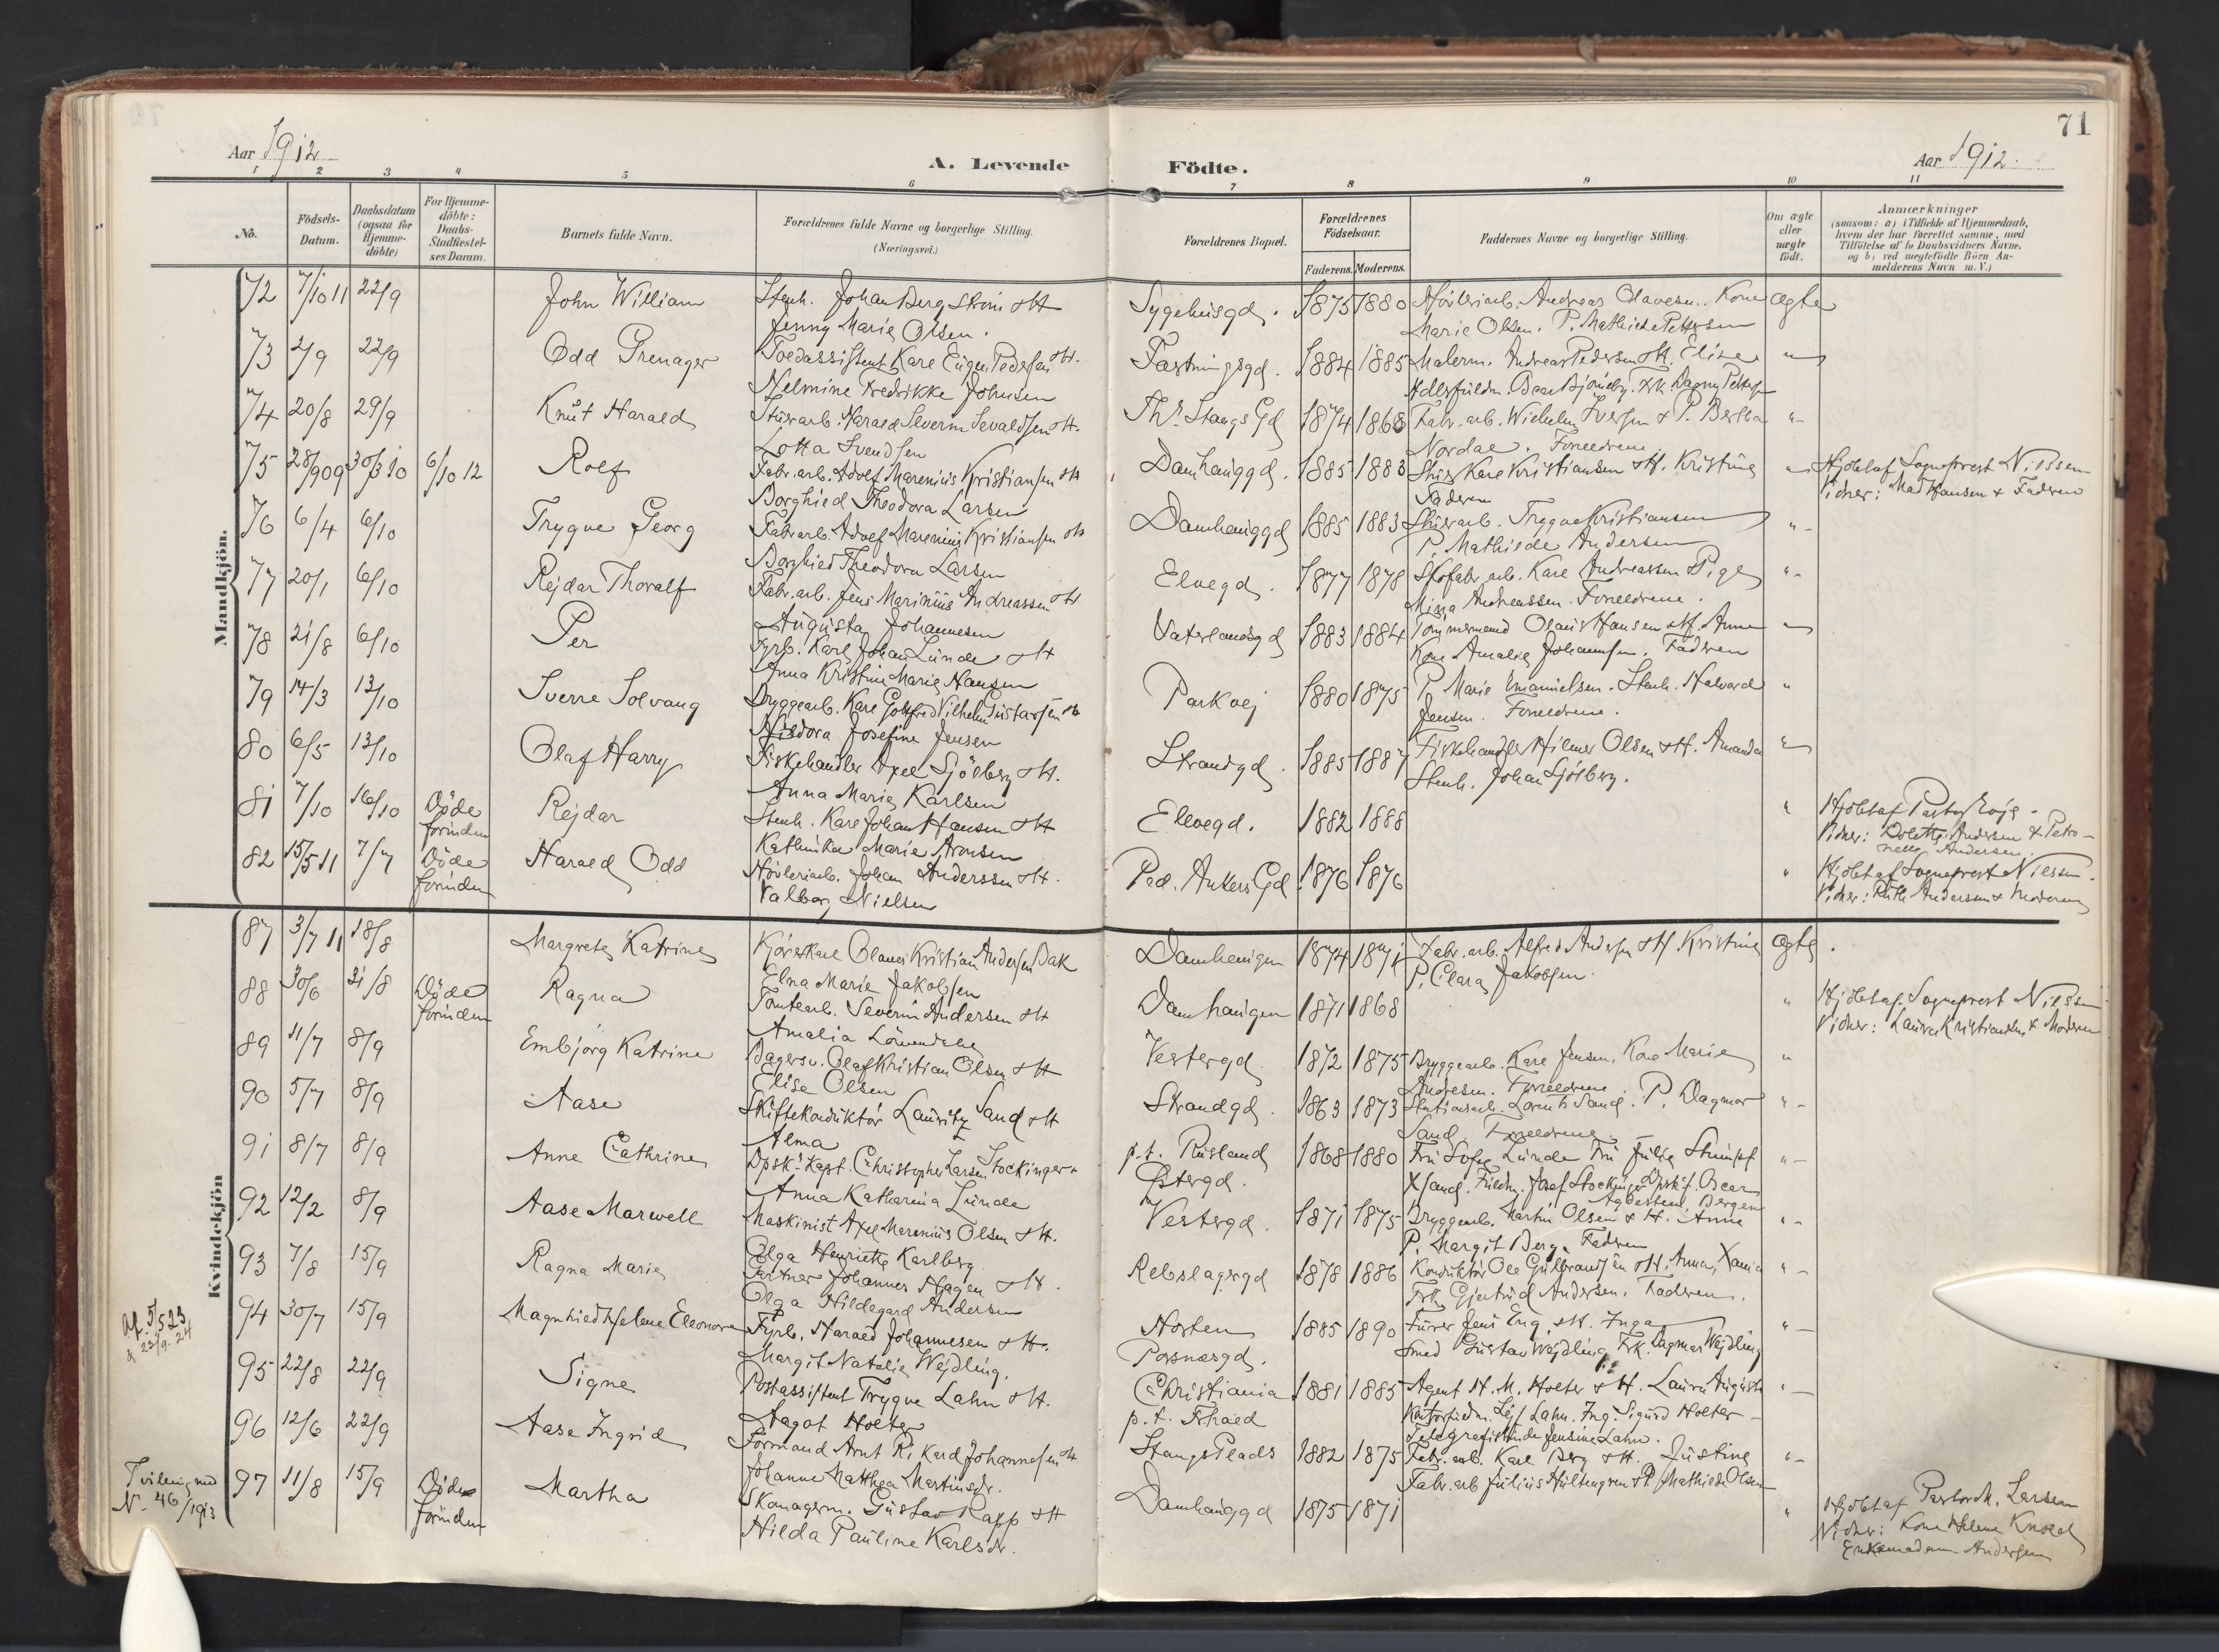 71
Aar 1912
A. Levende
Födte.
Aar 1912.
1 2 3 4 5 6 7 8 9 10 11
No.
Födsels-
Datum.
Daabsdatum
(ogsaa for
Hjemme-
döbte)
For Hjemme-
döbte:
Daabs-
Stadfæstel-
ses Datum.
Barnets fulde Navn.
Forældrenes fulde Navne og borgerlige Stilling.
(Næringsvei.)
Forældrenes Bopæl.
Forældrenes
Födselsaar.
Faderens. Moderens.
Faddernes Navne og borgerlige Stilling.
Om ægte
eller
uægte
födt.
Anmærkninger
(saasom: a) i Tilfælde af Hjemmedaab,
hvem der har forrettet samme, med
Tilföielse af to Daabsvidners Navne,
og b) ved uægtefödte Börn An-
melderens Navn m. V.)
Mandkjön.
72 7/10 11 22/9 John William Stenh. Johan Bergström & H
Jenny Marie Olsen.
Sygehusgd. 1875 1880 Høvleriarb. Andreas Olavesen. Kone
Marie Olsen. P. Mathilde Pettersen
ægte
73 2/9 22/9 Odd Grenager Toldassistent Karl Eugen Pedersen & H.
Helmine Fredrikke Johnsen
Fæstningsgd. 1884 1885 Malerm. Andreas Pedersen & H. Elise
Frk Dagny
74 20/8 29/9 Knut Harald Stuerarb. Harald Severin Sevaldsen & H.
Lotta Svendsen
Thr. Stangs Gd 1874 1868 Fabr. arb. Wilhelm Iversen & P. Bertha
Nordal. Forældrene
75 28/9 09 30/3 10 6/10 12 Rolf Fabr. arb. Adolf Marenius Kristiansen & H
Borghild Theodora Larsen
Damhauggd. 1885 1883 Karl Kristiansen & H. Kristine
Faderen
Hjdbt af Sogneprest Nilssen
Vidner: Mad Hansen & Faderen
76 6/4 6/10 Trygve Georg Fabr arb. Adolf Marenius Kristiansen & H
Borghild Theodora Larsen
Damhauggd 1885 1883 Stuerarb. Trygve Kristiansen
P. Mathilde Andersen
77 20/1 6/10 Rejdar Thoralf Fabr. arb. Jens Marinius Andreassen & H
Augusta Johannesen
Elvegd. 1877 1878 Skofabr. arb. Karl Andreassen & Pige
Mina Andreassen. Forældrene.
78 21/8 6/10 Per Fyrb. Karl Johan Lunde & H
Anna Kristine Marie Hansen
Vaterlandsgd 1883 1884 Tömmermand Olaus Hansen & H. Anna
Kone Amalie Johannsen. Faderen
79 14/3 13/10 Sverre Solvang Bryggearb. Karl Gottfred Vilhelm Gustavsen & H
Hildora Josefine Jensen
Parkvej 1880 1875 P. Marie Emanuelsen. Stenh. Halvard
Jensen. Forældrene.
80 6/5 13/10 Olaf Harry Fiskehandler Axel Sjölberg & H.
Anna Marie Karlsen
Strandgd. 1885 1887 Fiskehandler Hilmer Olsen & H. Amanda
Stenh. Johan Sjölberg.
81 7/10 16/10 Döde
forinden
Rejdar Stenh. Karl Johan Hansen & H
Kathinka Marie Aronsen
Elvegd. 1882 1888
Vidner: Andersen & Petro-
nelle Andersen.
82 15/5 11 7/7 Döde
forinden
Harald Odd Høvleriarb. Johan Anderssen & H.
Valborg Nielsen
Ped. Ankers Gd 1876 1876
Hjdbt af Sogneprest Nilssen.
Vidner: Ruth Anderssen & Moderen
Kvindekjön
87 3/7 11 18/8 Margrete Katrine Kjörekarl Olaus Kristian Andersen Bak
Elna Marie Jakobsen
Damhaugen 1874 1871 Fabr. arb. Alfred Andersen & H Kristine
P. Clara Jakobsen.
ægte
88 30/6 31/8 Döde
forinden
Ragna Tomtearb. Severin Andersen & H
Amalia
Damhaugen 1871 1868
Hjdbt af Sogneprest Nilssen
Vidner: Laura Kristiansen & Moderen
89 11/7 8/9 Embjörg Katrine Bagersv. Olaf Kristian Olsen & H
Elise Olsen
Vestergd. 1872 1875 Bryggearb. Karl Jensen. Kone Marie
Andresen. Forældrene.
90 5/7 8/9 Aase Skiftekonduktör Lauritz Sand & H
Alma
Strandgd. 1863 1873 Stationsarb. Lorentz Sand. P. Dagmar
Sand Forældrene
91 8/7 8/9 Anne Cathrine Dpsk. Kapt. Christopher Larsen Stockinger &
Anna Katharina Lunde
p.t. Rusland
Østergd.
1868 1880 Fru Sofie Lunde Fru Julie
Josef Stockinger Dpskf. Oscar
Bergen
92 12/2 8/9 Aase Marwell Maskinist Axel Marenius Olsen & H.
Olga Henriette Karlberg
Vestergd. 1871 1875 Bryggearb. Martin Olsen & H. Anna
P. Margit Berg. Faderen
93 7/8 15/9 Ragna Marie Gartner Johannes Hagen & H.
Olga Hildegard Andersen
Rebslagergd 1878 1886 Konduktör Ole Gulbrandsen & H. Anna, Xania
Frk Gjertrud Andersen. Faderen.
Af. 5/5 23
& 23/9. 24
94 30/7 15/9 Magnhild Helene Eleonora Fyrb. Harald Johannesen & H.
Margit Natalie Wejdling.
Horten
Possnesgd.
1885 1890 Furer Jens Eng & H. Inga
Smed Gustav Wejdling Frk. Dagmar Wejdling
95 22/8 22/9 Signe Postassistent Trygve Lahn & H.
Aagot Holter
Christiania
p.t. Frhald
1881 1885 Agent H. M. Holter & H. Laura Augusta
Leif Lahn. Ing. Sigurd Holter
Telegrafistinde Jensine Lahn.
96 12/6 22/9 Aase Ingrid Formand Arnt Rikard Johannesen & H
Johanne Matthea Martinsdr.
Stangs Plads 1882 1875 Fabr. arb. Karl Berg & H. Justine
Fabr. arb Julius Hultengren & P. Mathilde Olsen
Tvilling med
N. 46/1913
97 11/8 15/9 Döde
forinden
Martha Skomagerm. Gustav Rapp & H
Hilda Pauline Karlsdr.
Damhauggd 1875 1871
Hjdbt af Pastor M. Larsen
Vidner: Kone Helene Knold
Enkemadam Andersen